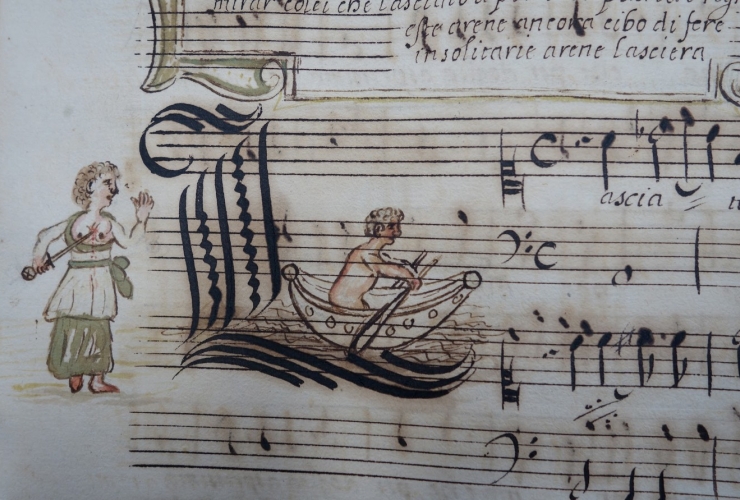 mirar colei che lasciato a
este arene ancora cibo di fere
in solitarie arene lasciera
L
ascia